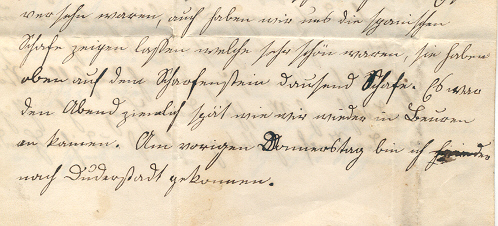 versehn waren, auch haben wir uns die spanischen
Schafe zeigen lassen welche sehr schön waren, sie haben
oben auf dem Scharfenstein dausend Schafe. Es war
den Abend ziemlich spät wie wir wieder in Beuren
an kamen. Am vorigen Donnerstag bin ich
nach Duderstadt gekommen.